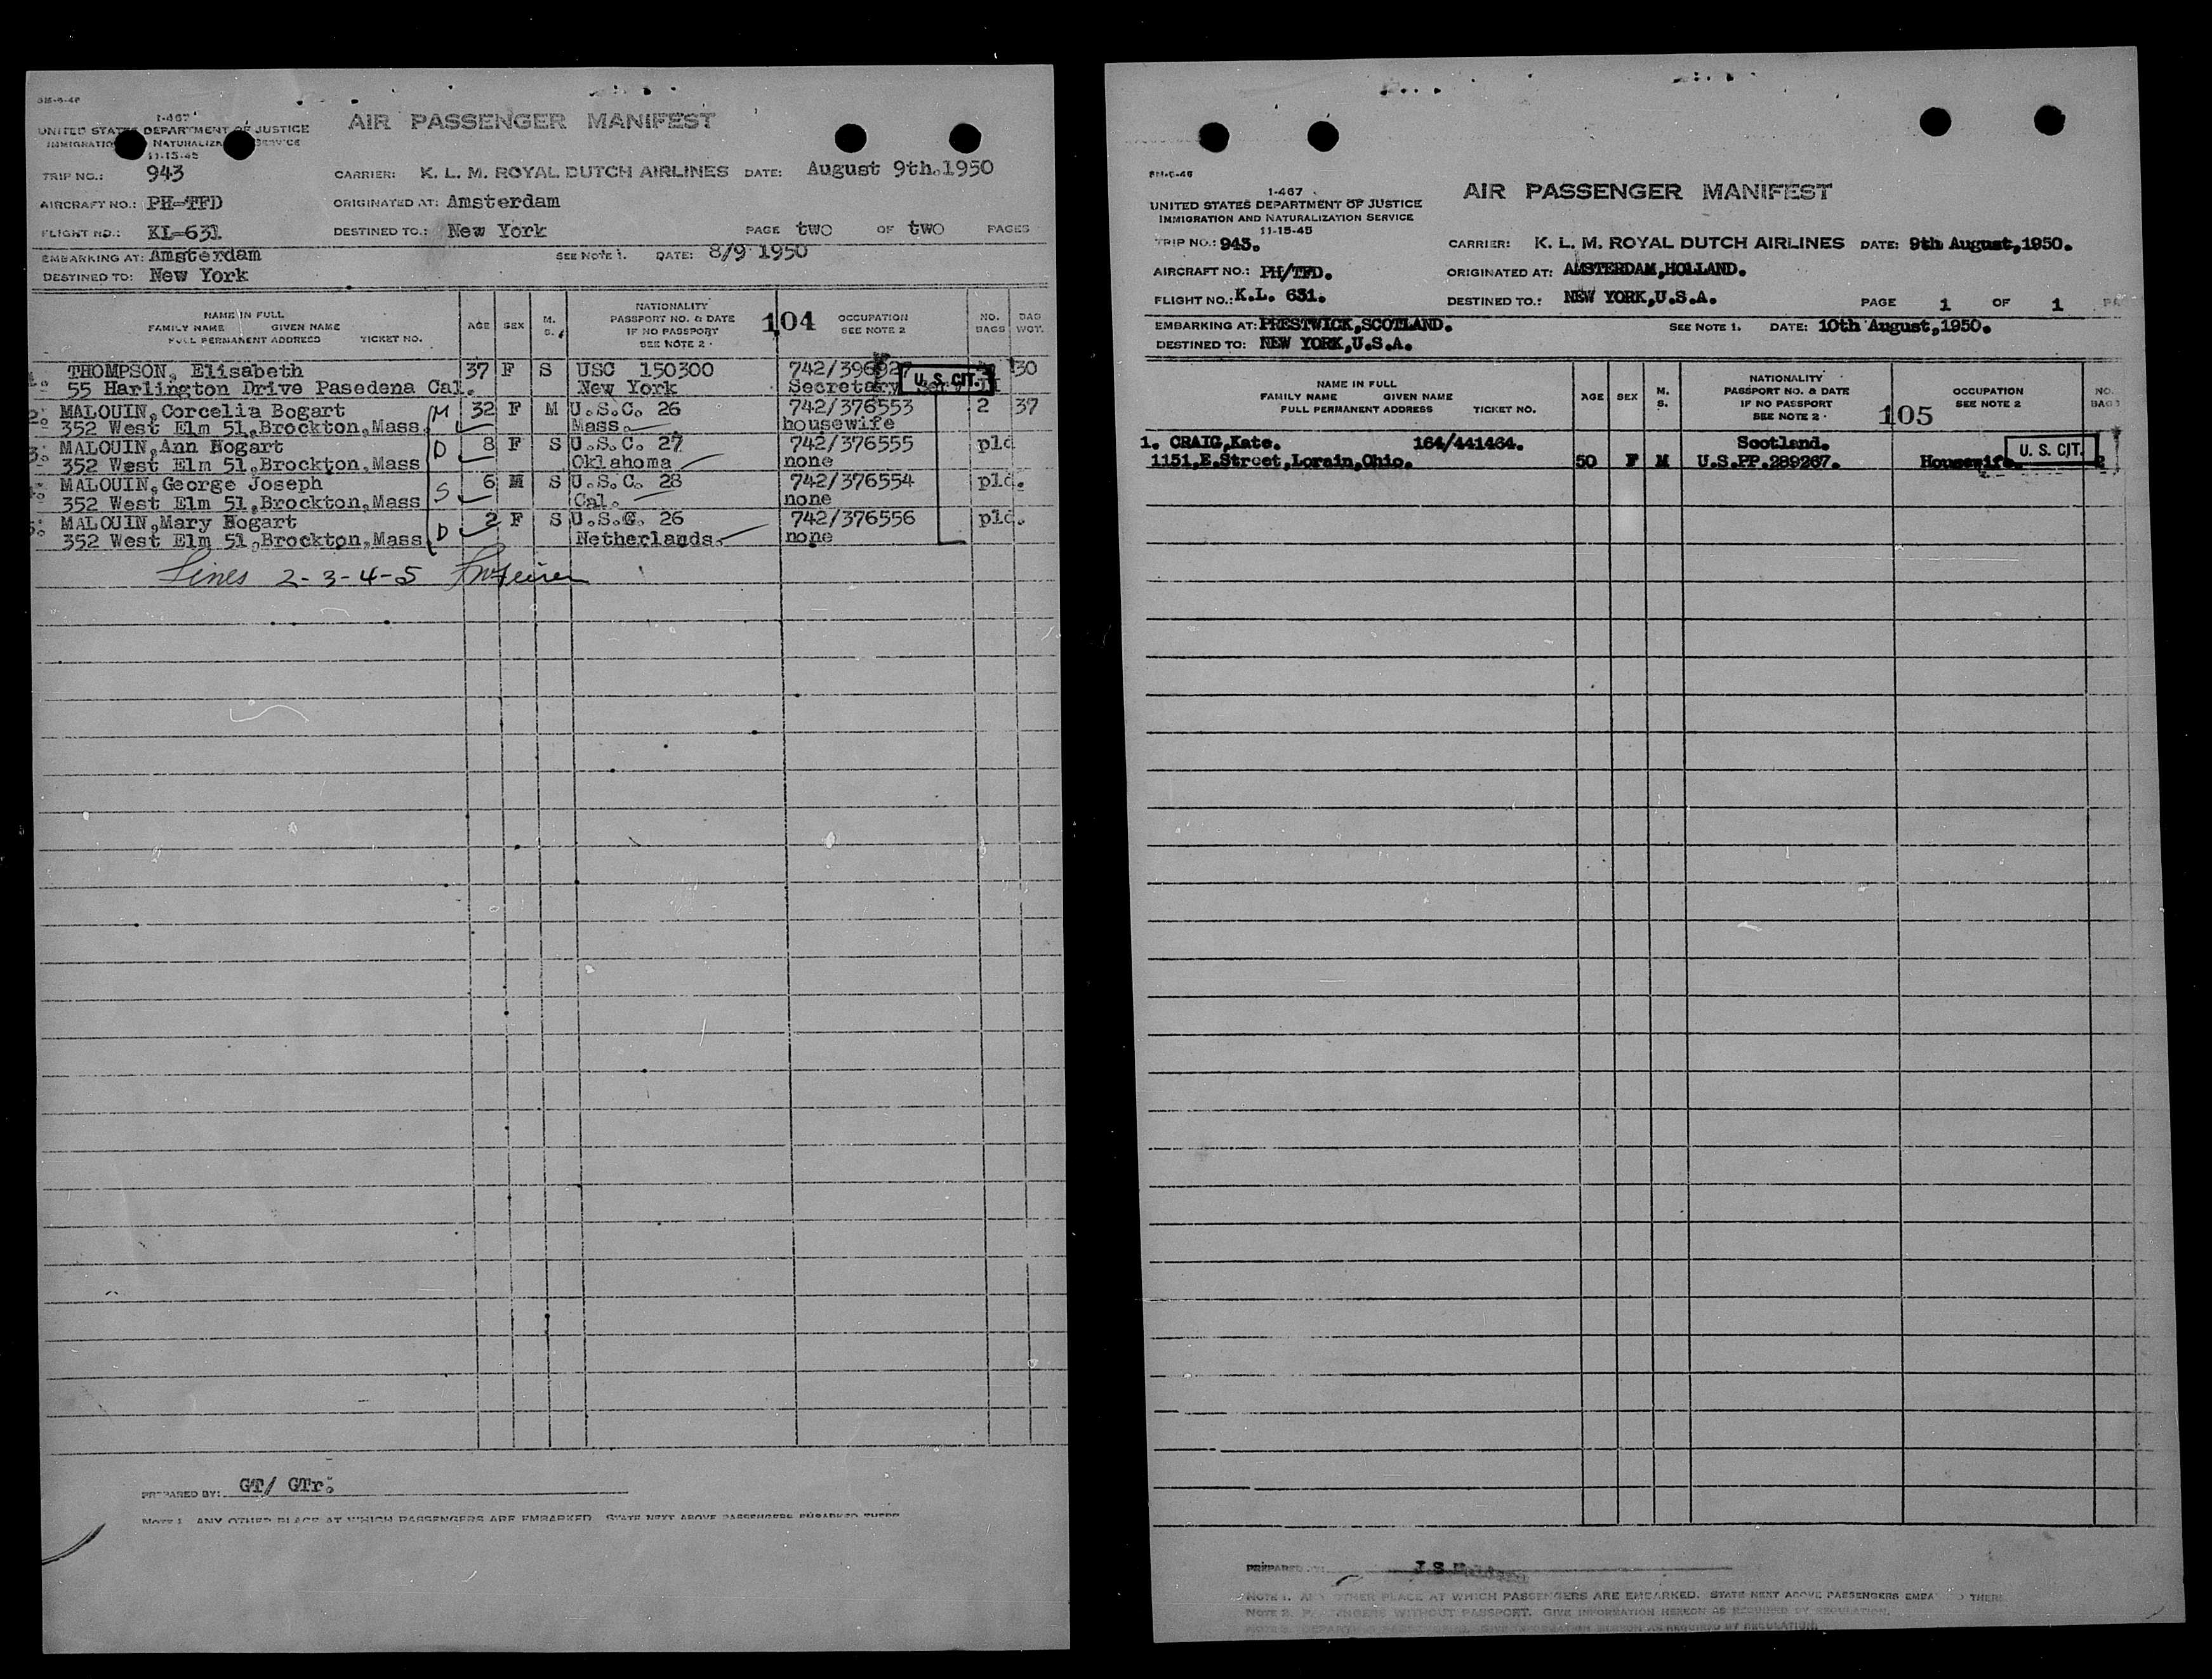 SM-6-46
I-467
UNITED STATES DEPARTMENT OF JUSTICE
IMMIGRATION NATURALIZA SERVICE
11-15-45
AIR PASSENGER MANIFEST
TRIP NO.: 943 CARRIER: K. L. M. ROYAL DUTCH AIRLINES DATE: August 9th.1950
AIRCRAFT NO.: PH-TFD ORIGINATED AT: Amsterdam
FLIGHT NO.: KL-631 DESTINED TO.: New York PAGE two OF two PAGES
EMBARKING AT: Amsterdam SEE NOTE 1. DATE: 8/9 1950
DESTINED TO: New York
NAME IN FULL
FAMILY NAME GIVEN NAME
FULL PERMANENT ADDRESS TICKET NO.
AGE SEX M. S.
NATIONALITY
PASSPORT NO. & DATE
IF NO PASSPORT
SEE NOTE 2
104
OCCUPATION
SEE NOTE 2
NO. BAGS
BAG WGT.
1. THOMPSON, Elisabeth 37 F S USC 150300 742/39692 30
55 Harlington Drive Pasedena Cal. New York Secretary U. S. CIT.
2. MALOUIN,Corcelia Bogart M 32 F M U.S.C. 26 742/376553 2 37
352 West Elm 51,Brockton,Mass Mass. housewife
3. MALOUIN,Ann Bogart D 8 F S U.S.C. 27 742/376555 pld
352 West Elm 51,Brockton,Mass Oklahoma none
4. MALOUIN,George Joseph S 6 M S U.S.C. 28 742/376554 pld.
352 West Elm 51,Brockton,Mass Cal. none
5. MALOUIN,Mary Bogart D 2 F S U.S.C. 26 742/376556 pld.
352 West Elm 51,Brockton,Mass. Netherlands. none
Lines 2-3-4-5
PREPARED BY: GT/ GTr.
NOTE 1. ANY OTHER PLACE AT WHICH PASSENGERS ARE EMBARKED. STATE NEXT ABOVE PASSENGERS EMBARKED THERE
SM-6-46
I-467
UNITED STATES DEPARTMENT OF JUSTICE
IMMIGRATION AND NATURALIZATION SERVICE
11-15-45
AIR PASSENGER MANIFEST
TRIP NO.: 943. CARRIER: K. L. M. ROYAL DUTCH AIRLINES DATE: 9th August,1950.
AIRCRAFT NO.: PH/TFD. ORIGINATED AT: AMSTERDAM,HOLLAND.
FLIGHT NO.: K.L. 631. DESTINED TO.: NEW YORK,U.S.A. PAGE 1 OF 1
EMBARKING AT: PRESTWICK,SCOTLAND. SEE NOTE 1. DATE: 10th August,1950.
DESTINED TO: NEW YORK,U.S.A.
NAME IN FULL
FAMILY NAME GIVEN NAME
FULL PERMANENT ADDRESS TICKET NO.
AGE SEX M. S.
NATIONALITY
PASSPORT NO. & DATE
IF NO PASSPORT
SEE NOTE 2
105
OCCUPATION
SEE NOTE 2
NO. BAGS
1. CRAIG,Kate. 164/441464. Scotland. U. S. CIT.
1151,E.Street,Lorain,Ohio. 50 F M U.S.PP.289267. Housewife. 2
PREPARED
NOTE 1. ANY OTHER PLACE AT WHICH PASSENGERS ARE EMBARKED. STATE NEXT ABOVE PASSENGERS EMBA THERE
NOTE 2. PASSENGERS WITHOUT PASSPORT. GIVE INFORMATION HEREON AS REQUIRED BY REGULATION.
NOTE 3. DEPARTING PASSENGERS. GIVE INFORMATION HEREON AS REQUIRED BY REGULATION.